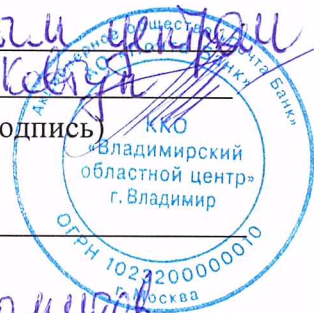 ым центром
Ковтун
одпись)
Акционерное общество «Почта Банк»
ККО
«Владимирский
областной центр»
г. Владимир
ОГРН 1023200000010
г. Москва